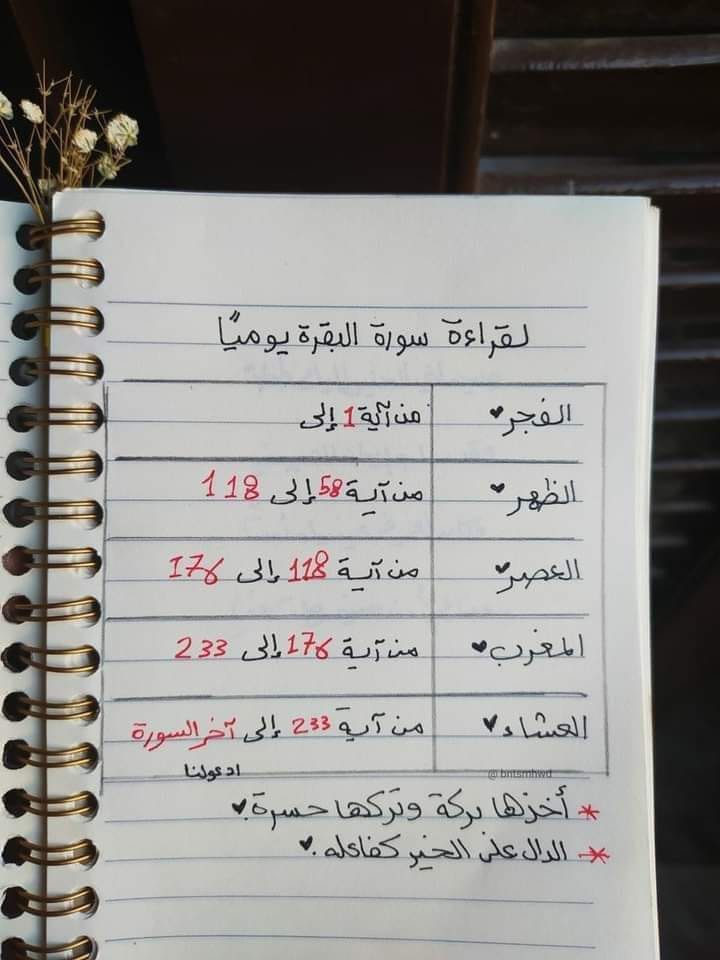 لقراءة سورة البقرة يوميًا
الفجر♥ من آية 1 إلى
الظهر♥ من آية 58 إلى 118
العصر♥ من آية 118 إلى 176
المغرب♥ من آية 176 إلى 233
العشاء♥ من آية 233 إلى آخر السورة
ادعولنا
@bntsmhwd
* أخذها بركة وتركها حسرة.♥
* الدال على الخير كفاعله.♥